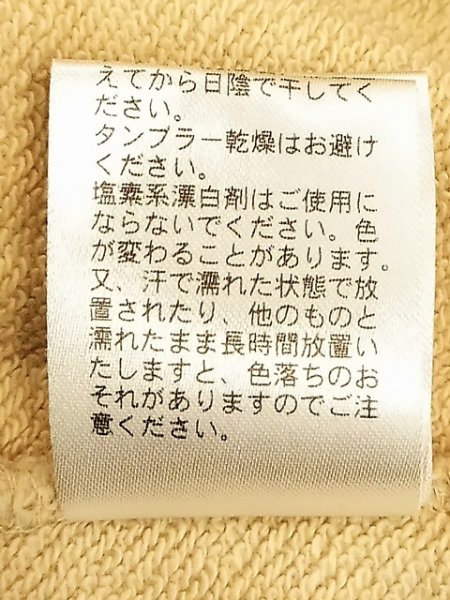 えてから日陰で干してく
ださい。
タンブラー乾燥はお避け
ください。
塩素系漂白剤はご使用に
ならないでください。色
が変わることがあります。
又、汗で濡れた状態で放
置されたり、他のものと
濡れたまま長時間放置い
たしますと、色落ちのお
それがありますのでご注
意ください。